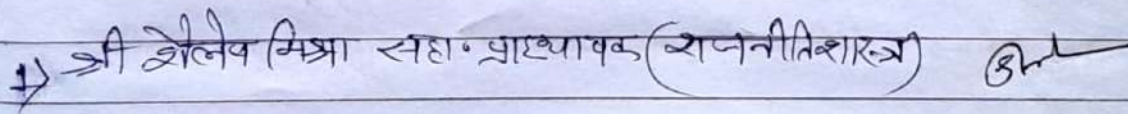 1) श्री शैलेव मिश्रा सहा. प्राध्यापक (राजनीतिशास्त्र)